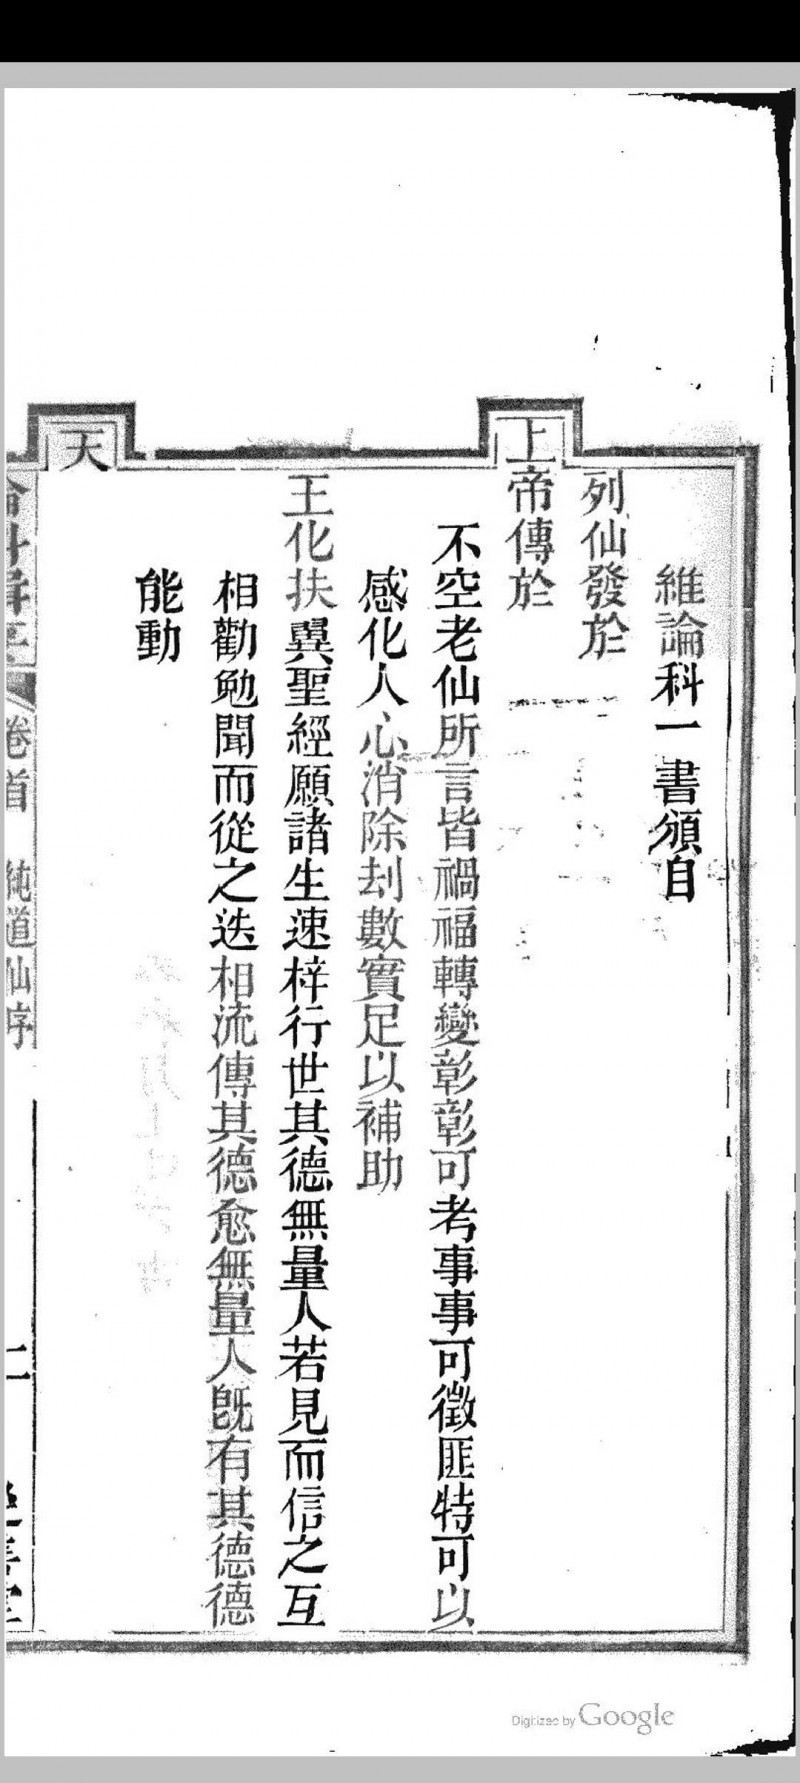 維論科一書頒自
列仙發於
上帝傳於
不空老仙所言皆禍福轉變彰彰可考事事可徵匪特可以
感化人心消除刼數實足以補助
王化扶翼聖經願諸生速梓行世其德無量人若見而信之互
相勸勉聞而從之迭相流傳其德愈無量人旣有其德德
能動
天
卷首 純道仙序
二
Digitized by Google